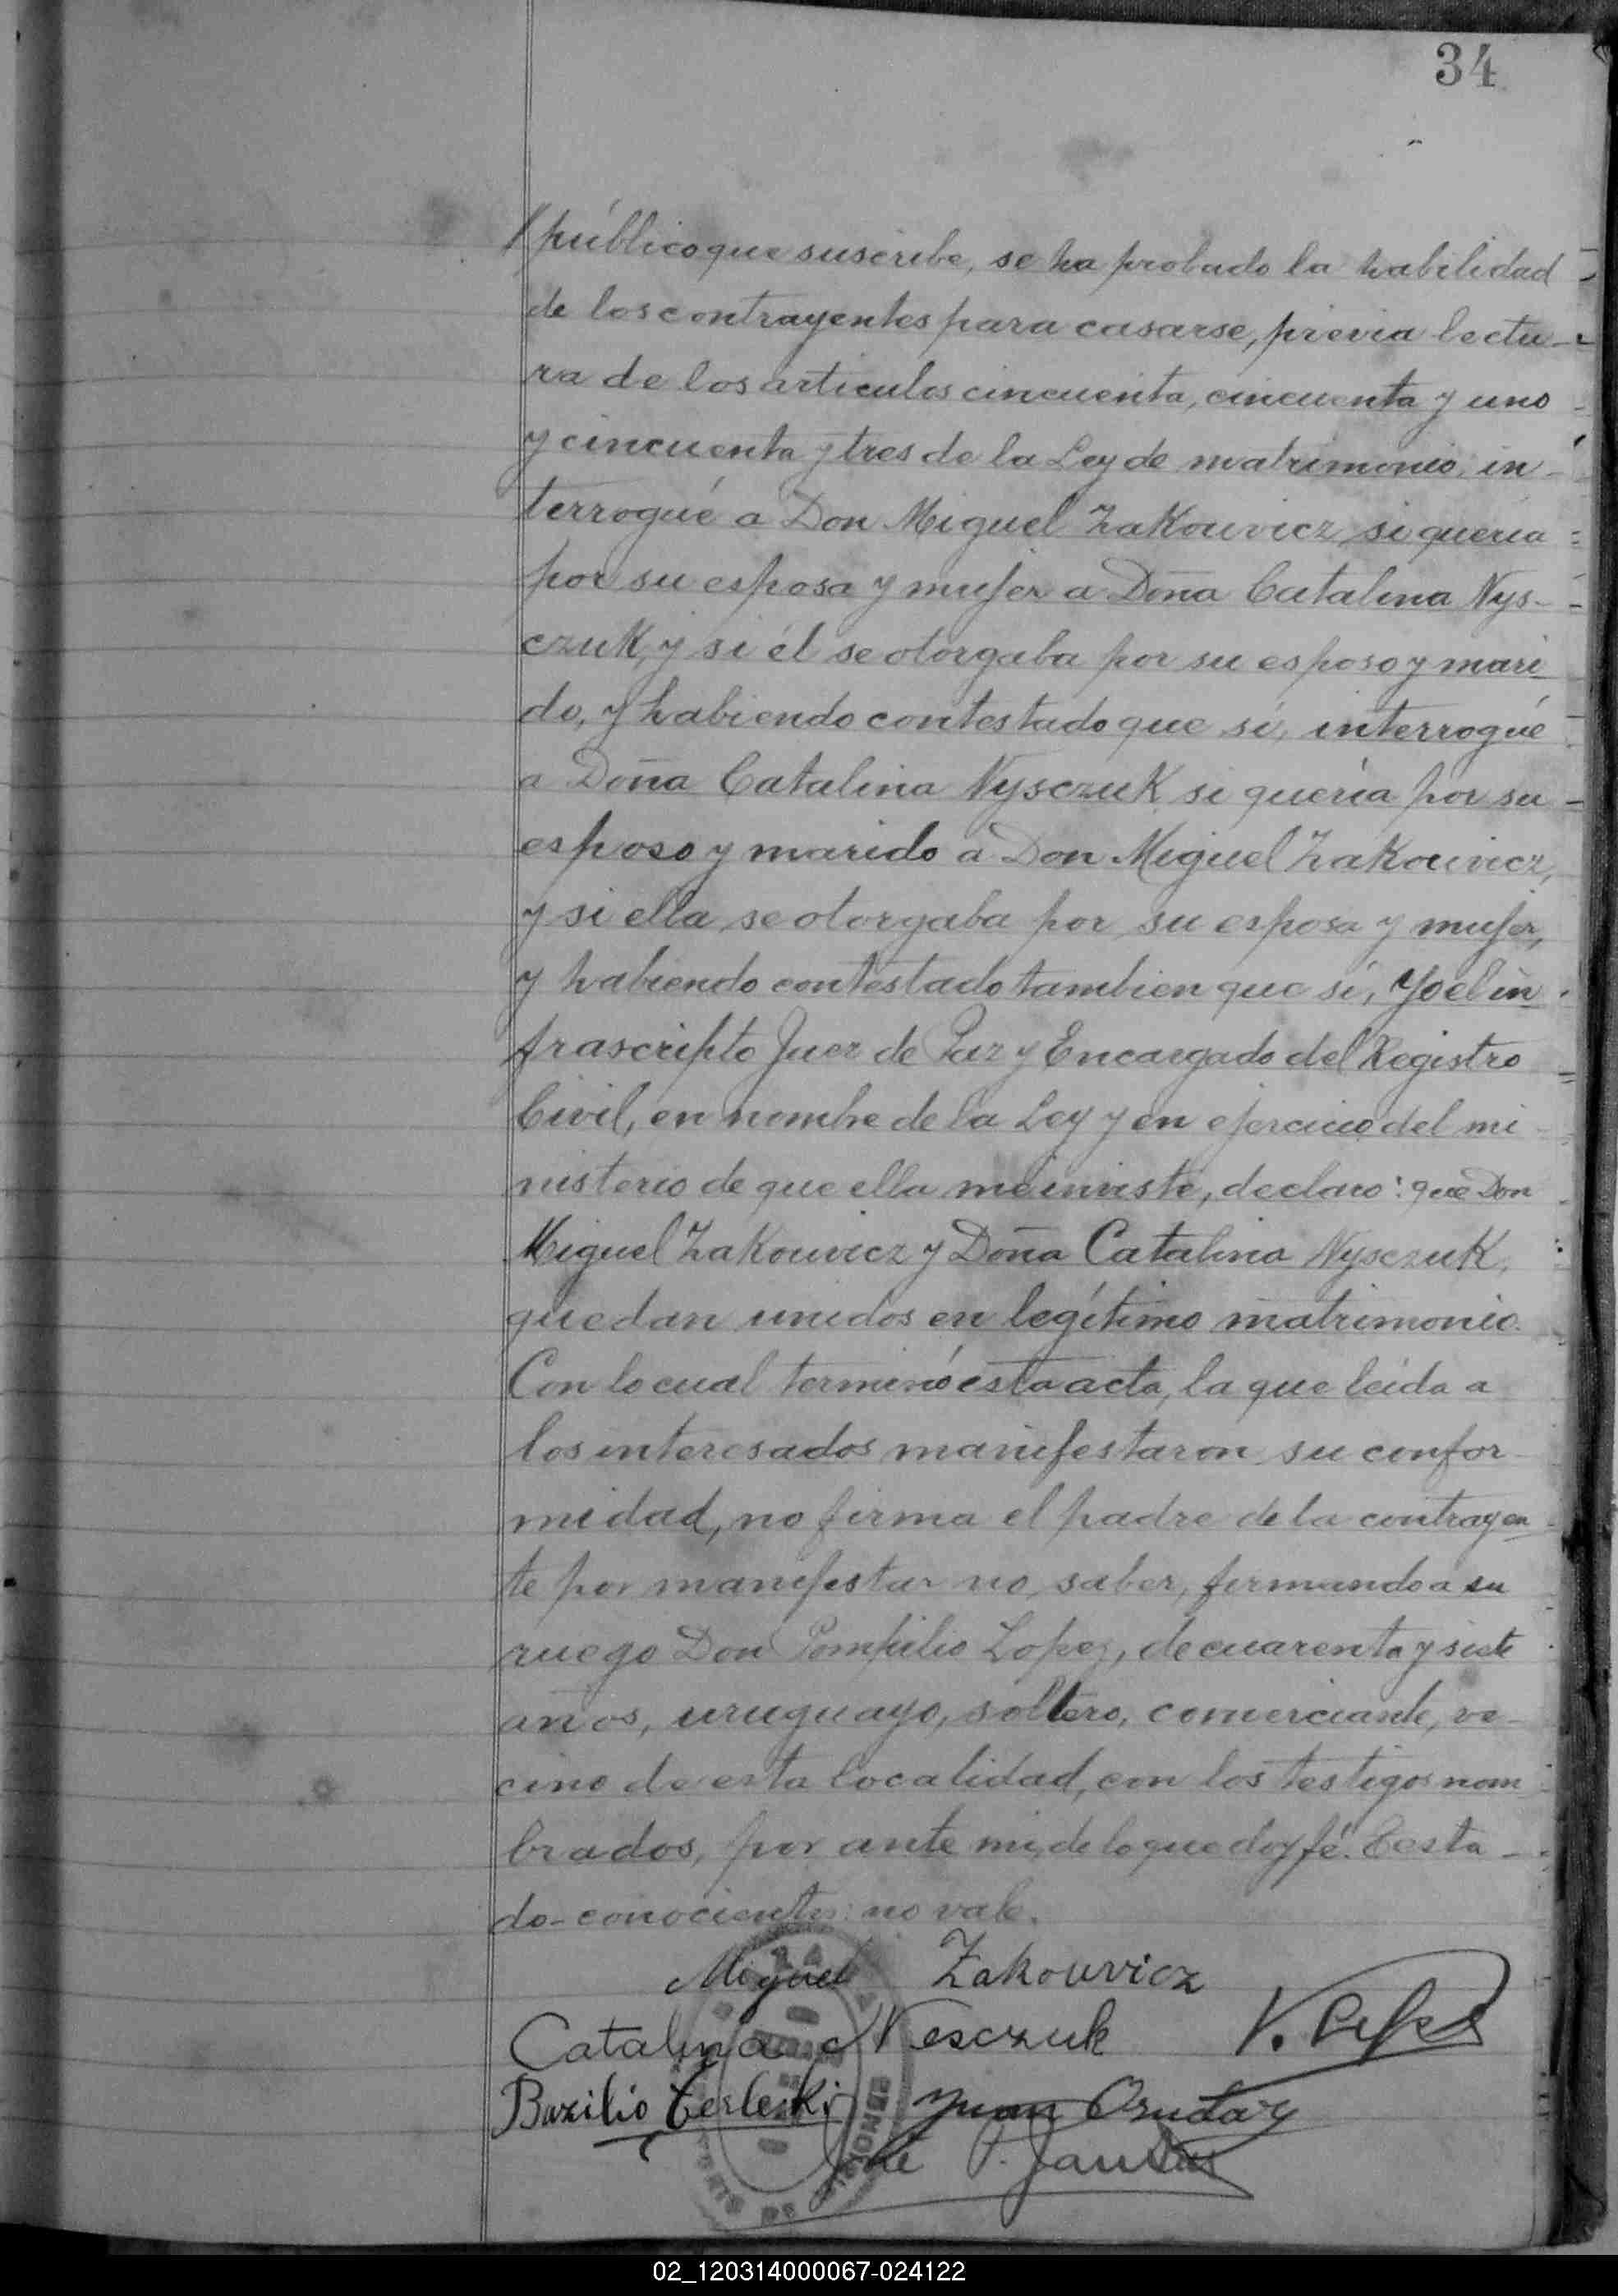 34
público que suscribe, se ha probado la habilidad
de los contrayentes para casarse, previa lectu-
ra de los artículos cincuenta, cincuenta y uno
y cincuenta y tres de la Ley de matrimonio, in-
terrogué a Don Miguel Zakouvicz si quería
por su esposa y mujer a Doña Catalina Nys-
czuk, y si él se otorgaba por su esposo y mari
do, y habiendo contestado que sí, interrogué
a Doña Catalina Nysczuk si quería por su
esposo y marido a Don Miguel Zakouvicz,
y si ella se otorgaba por su esposa y mujer,
y habiendo contestado tambien que sí, Yo el in
frascripto Juez de Paz y Encargado del Registro
Civil, en nombre de la Ley y en ejercicio del mi
nisterio de que ella me inviste, declaro: que Don
Miguel Zakouvicz y Doña Catalina Nysczuk,
quedan unidos en legítimo matrimonio.
Con lo cual terminó esta acta, la que leída a
los interesados manifestaron su confor
midad, no firma el padre de la contrayen
te por manifestar no saber, firmando a su
ruego Don Pompilio Lopez, de cuarenta y siete
años, uruguayo, soltero, comerciante, ve-
cino de esta localidad, con los testigos nom
brados, por ante mi, de lo que doy fé. Testa-
do-conocientes: no vale.
Miguel Zakouvicz
Catalina Nesczuk
Bazilio Terleski Juan
José P.
02_120314000067-024122